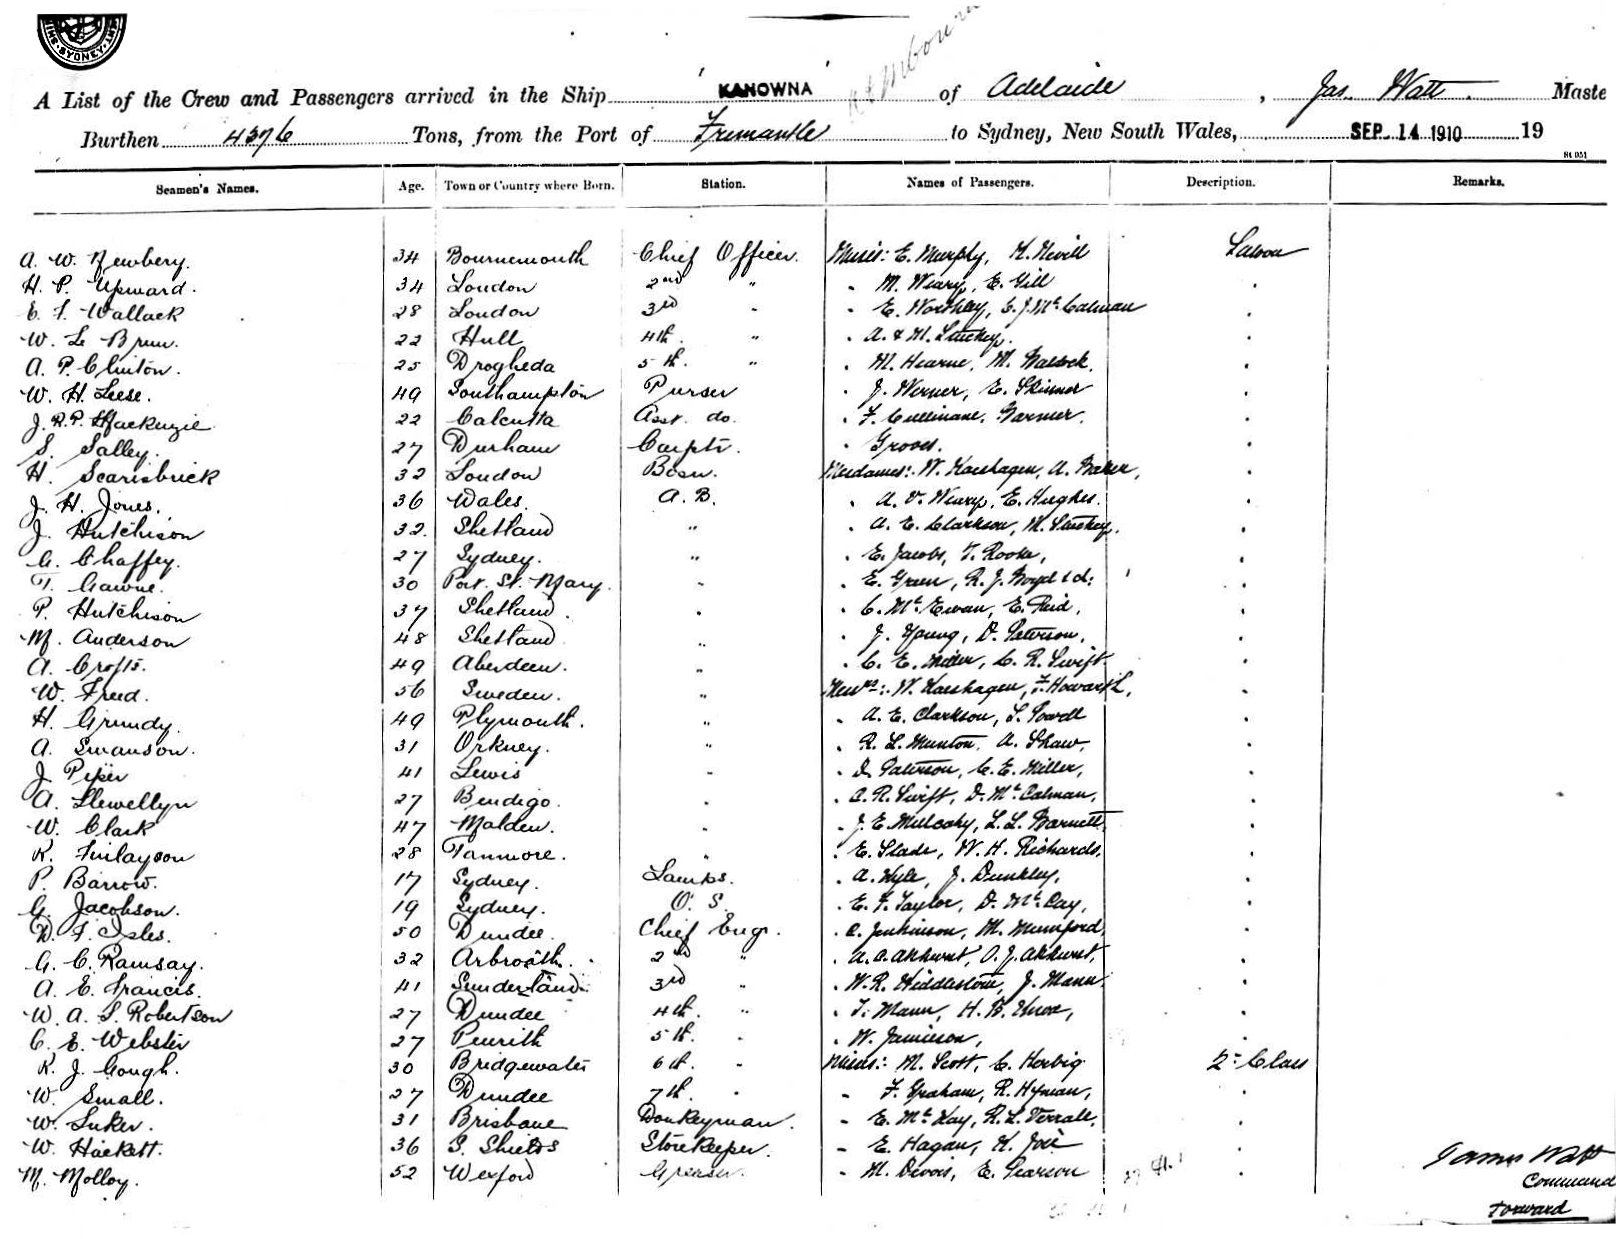 SYDNEY
A List of the Crew and Passengers arrived in the Ship KANOWNA of Adelaide, Jas. Watt. Maste
Burthen 4376 Tons, from the Port of Fremantle to Sydney, New South Wales, SEP 14 1910 19
St 051
Seamen's Names. Age. Town or Country where Born. Station. Names of Passengers. Description. Remarks.
A. W. Newbery. 34 Bournemouth Chief Officer. Misses: E. Murphy, K. Nevill Saloon
H. P. Upward. 34 London 2nd " M. Weary, E. Gill
E. F. Wallack 28 London 3rd " E. Worthley, C. J. McCalman
W. Le Brun. 22 Hull 4th. " A. & M. Stuckey.
A. P. Clinton. 25 Drogheda 5th. " M. Hearne, M.
W. H. Leese. 49 Southampton Purser J. Werner, E. Skinner
J. R. P. Mackenzie 22 Calcutta Asst. do. F. Cullinane, Garner.
S. Salley. 27 Durham Carptr. Groves.
H. Scarisbrick 32 London Bosn. Mesdames: W. Kaeshagen, A. Baker,
J. H. Jones. 36 Wales. A. B. A. V. Weary, E. Hughes.
J. Hutchison 32. Shetland " A. E. Clarkson, M. Stuckey.
G. Chaffey. 27 Sydney. " E. Jacobs, T. Rooke,
T. Gawne. 30 Port. St. Mary. " E. Green, R. J. Boyd & d:
P. Hutchison 37 Shetland. " C. McEwan, E. Reid,
M. Anderson 48 Shetland " J. Young, D. Peterson,
A. Crofts. 49 Aberdeen. " C. E. Miller, C. R. Swift.
W. Freed. 56 Sweden. " Messrs: W. Kaeshagen, F. Howarth,
H. Grundy. 49 Plymouth. " A. E. Clarkson, S. Powell
A. Swanson. 31 Orkney. " R. L. Munton, A. Shaw,
J. Piper 41 Lewis " D. Paterson, C. E. Miller,
A. Llewellyn 27 Bendigo. " C. R. Swift, D. McCalman,
W. Clark 47 Malden. " J. E. Mulcahy, L. L. Barnett.
K. Finlayson 28 Tanmore. " E. Slade, W. H. Richards,
P. Barrow. 17 Sydney. Lamps. A. Wyle, J. Dunkley,
G. Jacobson. 19 Sydney. O. S. E. F. Taylor, D. McCay,
D. F. Isles. 50 Dundee. Chief Engr. C. Jenkinson, M. Mumford,
G. C. Ramsay. 32 Arbroath. 2nd " A. A. Akhurst, O. J. Akhurst,
A. E. Francis. 41 Sunderland 3rd " W. R. Hiddlestone, J. Mann.
W. A. S. Robertson 27 Dundee 4th. " T. Mann, H. B. Knox,
C. E. Webster 27 Penrith 5th. " W. Jamieson,
K. J. Gough. 30 Bridgewater 6th. " Misses: M. Scott, C. Herbig 2nd Class
W. Small. 27 Dundee 7th. " F. Graham, R. Hyman,
W. Suker. 31 Brisbane Donkeyman. E. McKay, R. L. Verrall,
W. Hackett. 36 S. Shields Storekeeper. E. Hagan, K.
M. Molloy. 52 Wexford Greaser. M. E. Pearson
James Watt
Command
Forward